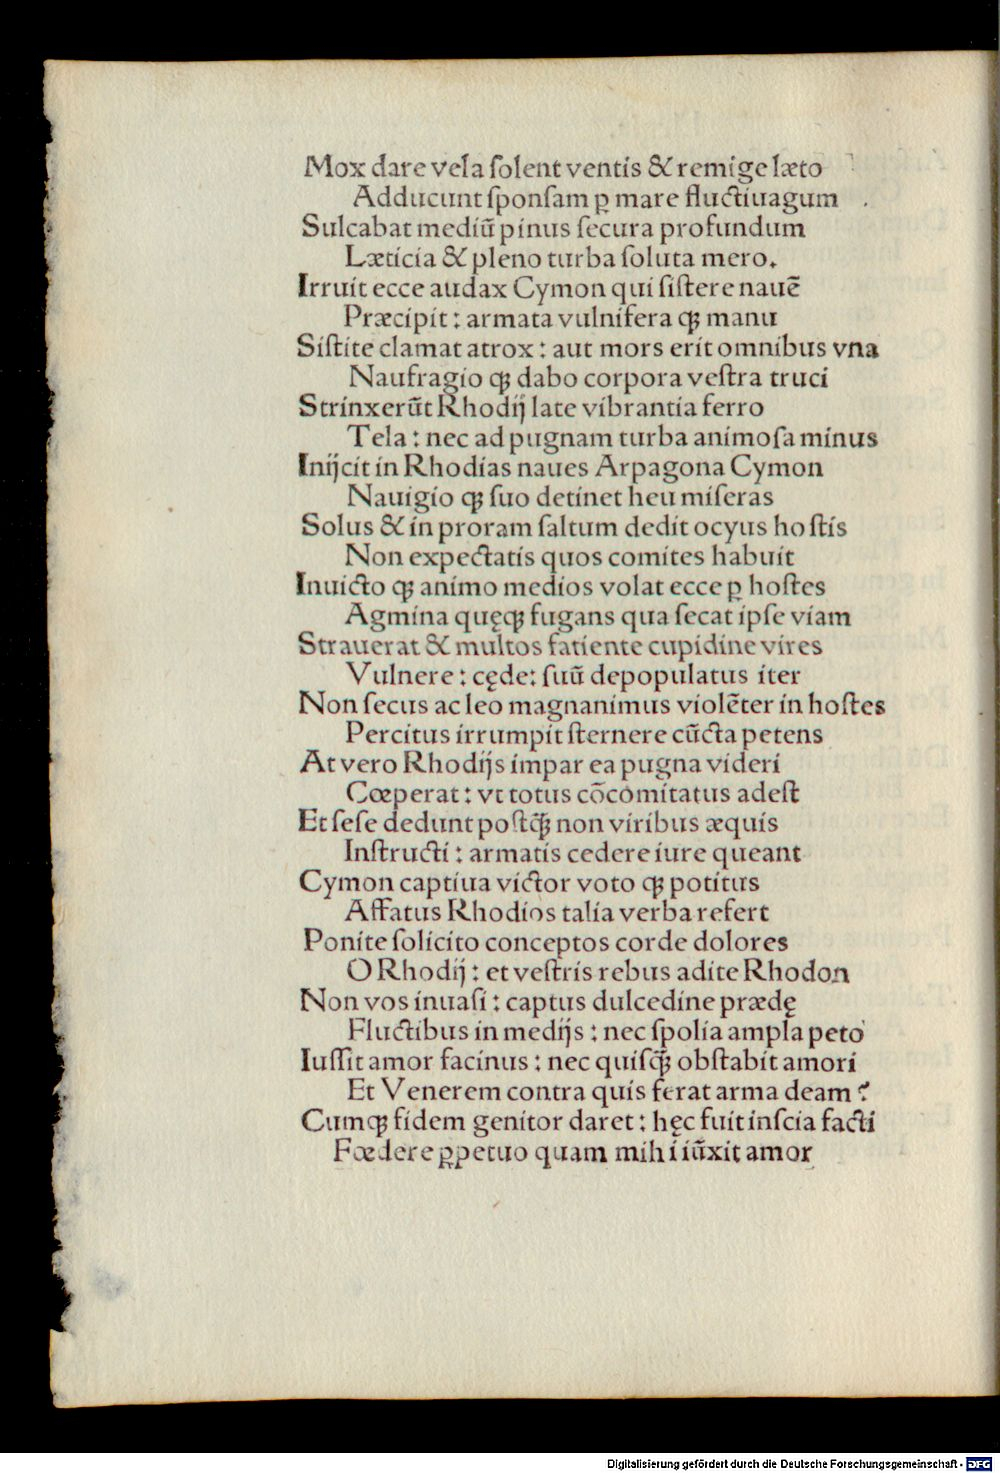 Mox dare vela ſolent ventis & remige læto
Adducunt ſponſam ꝑ mare fluctiuagum .
Sulcabat mediū pinus ſecura profundum
Læticia & pleno turba ſoluta mero.
Irruit ecce audax Cymon qui ſiſtere nauē
Præcipit : armata vulnifera qꝫ manu
Siſtite clamat atrox : aut mors erit omnibus vna
Naufragio qꝫ dabo corpora veſtra truci
Strinxerūt Rhodij late vibrantia ferro
Tela : nec ad pugnam turba animoſa minus
Inijcit in Rhodias naues Arpagona Cymon
Nauigio qꝫ ſuo detinet heu miſeras
Solus & in proram ſaltum dedit ocyus hoſtis
Non expectatis quos comites habuit
Inuicto qꝫ animo medios volat ecce ꝑ hoſtes
Agmina quęqꝫ fugans qua ſecat ipſe viam
Strauerat & multos fatiente cupidine vires
Vulnere : cęde : ſuū depopulatus iter
Non ſecus ac leo magnanimus violēter in hoſtes
Percitus irrumpit ſternere cūcta petens
At vero Rhodijs impar ea pugna videri
Cœperat : vt totus cōcomitatus adeſt
Et ſeſe dedunt poſtq̄ꝫ non viribus æquis
Inſtructi : armatis cedere iure queant
Cymon captiua victor voto qꝫ potitus
Affatus Rhodios talia verba refert
Ponite ſolicito conceptos corde dolores
O Rhodij : et veſtris rebus adite Rhodon
Non vos inuaſi : captus dulcedine prædę
Fluctibus in medijs : nec ſpolia ampla peto
Iuſſit amor facinus : nec quiſq̄ꝫ obſtabit amori
Et Venerem contra quis ferat arma deam ?
Cumqꝫ fidem genitor daret : hęc fuit inſcia facti
Fœdere ꝑpetuo quam mihi iūxit amor
Digitalisierung gefördert durch die Deutsche Forschungsgemeinschaft - DFG